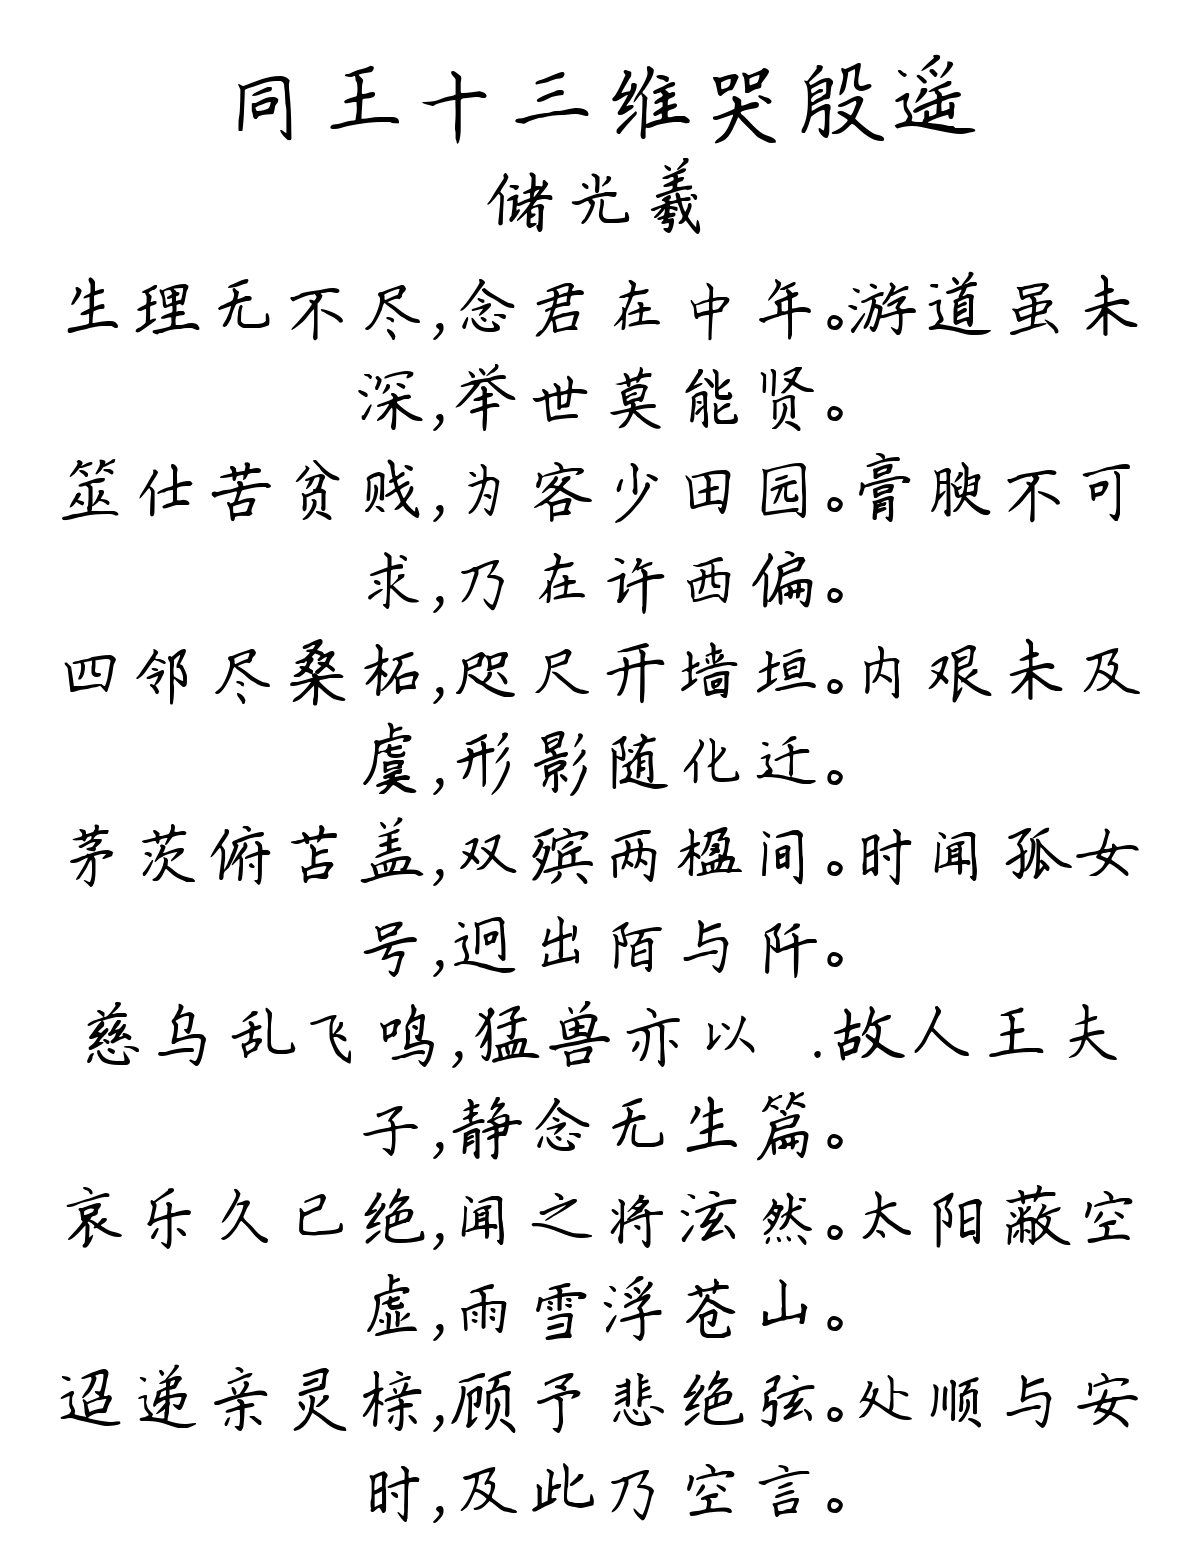 同王十三维哭殷遥
储光羲
生理无不尽,念君在中年。游道虽未
深,举世莫能贤。
筮仕苦贫贱,为客少田园。膏腴不可
求,乃在许西偏。
四邻尽桑柘,咫尺开墙垣。内艰未及
虞,形影随化迁。
茅茨俯苫盖,双殡两楹间。时闻孤女
号,迥出陌与阡。
慈乌乱飞鸣,猛兽亦以 .故人王夫
子,静念无生篇。
哀乐久已绝,闻之将泫然。太阳蔽空
虚,雨雪浮苍山。
迢递亲灵榇,顾予悲绝弦。处顺与安
时,及此乃空言。